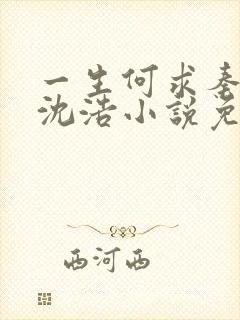 一生何求秦
沈浩小說免
西河西